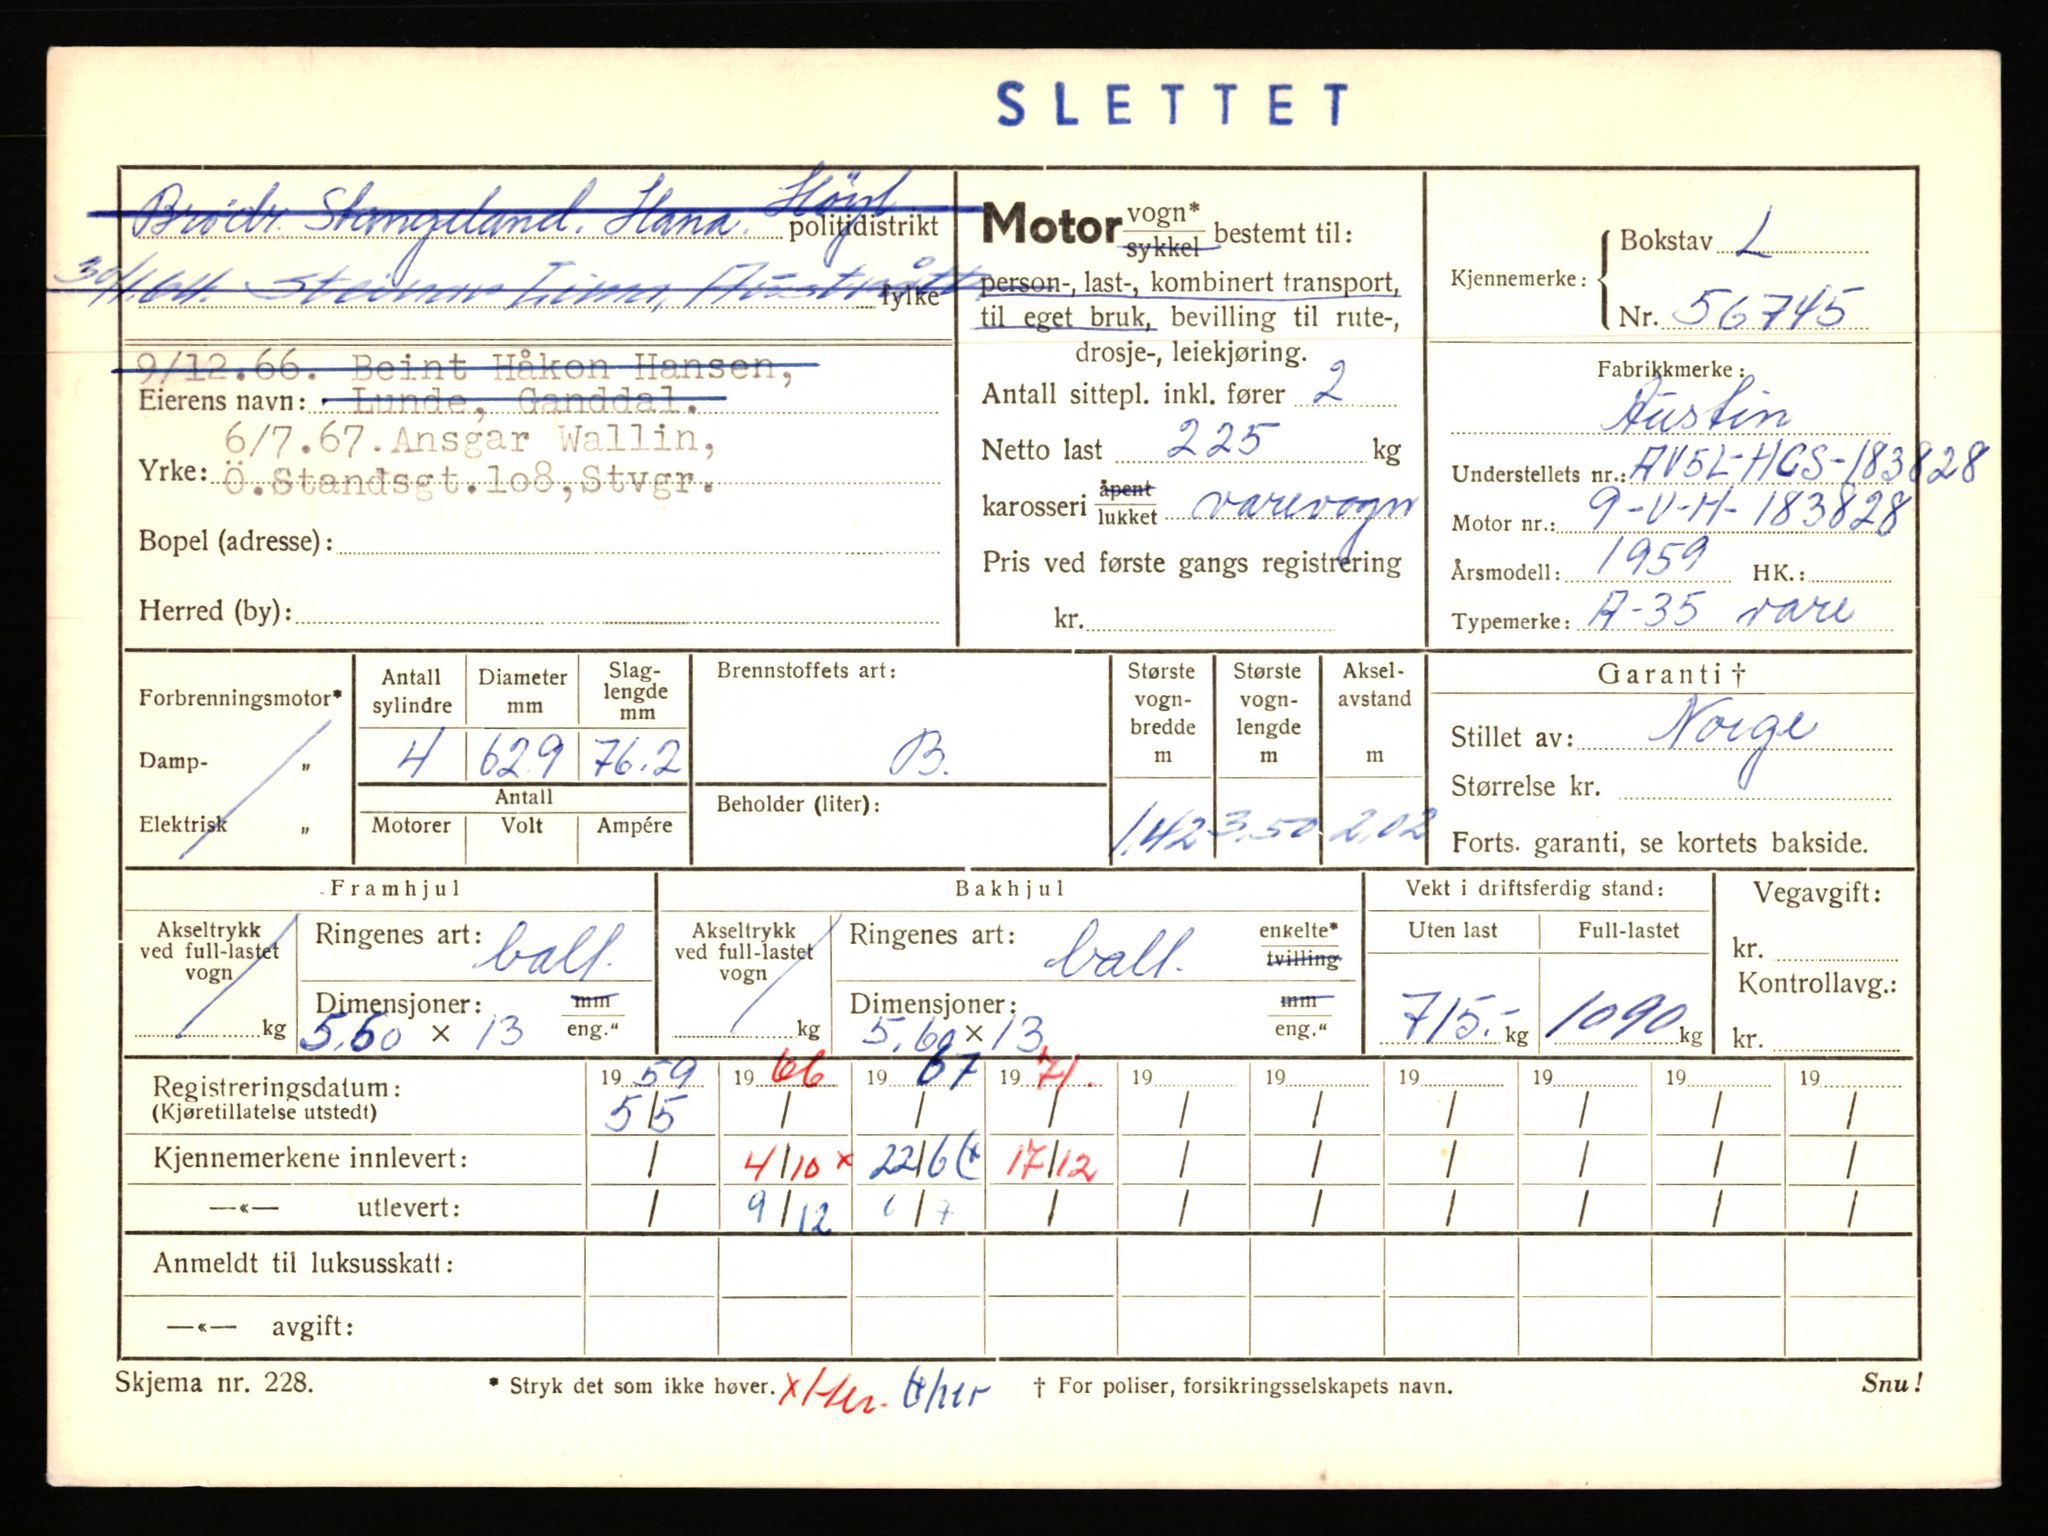 SLETTET
Brödr. Stangeland. Hana. Höyl
politidistrikt
30/1.64. Steinar Lima, Austrått
fylke
9/12.66. Beint Håkon Hansen,
Eierens navn: Lunde, Ganddal.
6/7.67. Ansgar Wallin,
Yrke: Ö.Standsgt.1o8,Stvgr.
Bopel (adresse):
Herred (by):
Motor vogn* sykkel bestemt til:
person-, last-, kombinert transport,
til eget bruk, bevilling til rute-,
drosje-, leiekjøring.
Antall sittepl. inkl. fører 2
Netto last 225 kg
karosseri åpent lukket varevogn
Pris ved første gangs registrering
kr.
Kjennemerke: { Bokstav L
Nr. 56745
Fabrikkmerke:
Austin
Understellets nr.: AV5L-HCS-183828
Motor nr.: 9-V-H-183828
Årsmodell: 1959 HK.:
Typemerke: A-35 vare
Forbrenningsmotor*
Damp- „
Elektrisk „
Antall sylindre
Diameter mm
Slag-lengde mm
4 62.9 76.2
Antall
Motorer Volt Ampére
Brennstoffets art:
B.
Beholder (liter):
Største vogn-bredde m
Største vogn-lengde m
Aksel-avstand m
1,42 3,50 2,02
Garanti †
Stillet av: Norge
Størrelse kr.
Forts. garanti, se kortets bakside.
Framhjul
Akseltrykk ved full-lastet vogn
kg
Ringenes art: ball.
Dimensjoner: mm
5.60 × 13 eng."
Bakhjul
Akseltrykk ved full-lastet vogn
kg
Ringenes art: ball. enkelte* tvilling
Dimensjoner: mm
5.60 × 13 eng."
Vekt i driftsferdig stand:
Uten last Full-lastet
715.- kg 1090 kg
Vegavgift:
kr.
Kontrollavg.:
kr.
Registreringsdatum: 19 59 19 66 19 67 19 71. 19 19 19 19 19 19
(Kjøretillatelse utstedt) 5/5 / / / / / / / / /
Kjennemerkene innlevert: / 4/10 x 22/6 (x 17/12 / / / / / /
—«— utlevert: / 9/12 /7 / / / / / / /
Anmeldt til luksusskatt:
—«— avgift:
Skjema nr. 228. * Stryk det som ikke høver. x/ † For poliser, forsikringsselskapets navn. Snu!